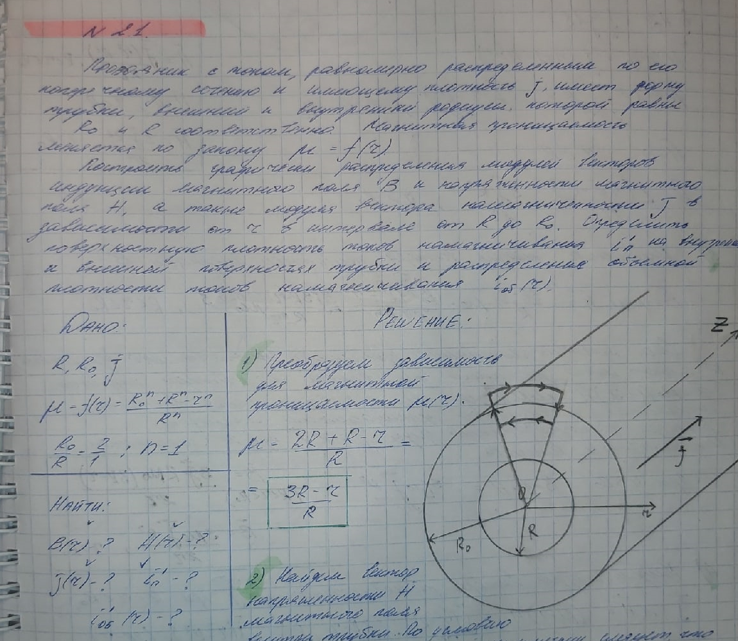 N 21.
Проводник с током, равномерно распределенным по его
поперечному сечению и имеющему плотность j, имеет форму
трубки, внешний и внутренний радиусы которой равны
R₀ и R соответственно. Магнитная проницаемость
меняется по закону μ = f(r).
Построить графически распределения модулей векторов
индукции магнитного поля B и напряженности магнитного
поля H, а также модуля вектора намагниченности J в
зависимости от r в интервале от R до R₀. Определить
поверхностную плотность токов намагничивания i'п на внутренней
и внешней поверхностях трубки и распределение объемной
плотности токов намагничивания i'об(r).
Дано:
R, R₀, j
μ = f(r) = (R₀ⁿ + Rⁿ - rⁿ)/Rⁿ
R₀/R = 2/1 ; n = 1
Найти:
B(r) - ? H(r) - ?
J(r) - ? i'п - ?
i'об (r) - ?
Решение:
1) Преобразуем зависимость
для магнитной
проницаемости μ(r).
μ = (2R + R - r)/R =
= (3R - r)/R
2) Найдем вектор
напряженности H
магнитного поля
внутри трубки. По условию
z
j
r
O
R₀
R